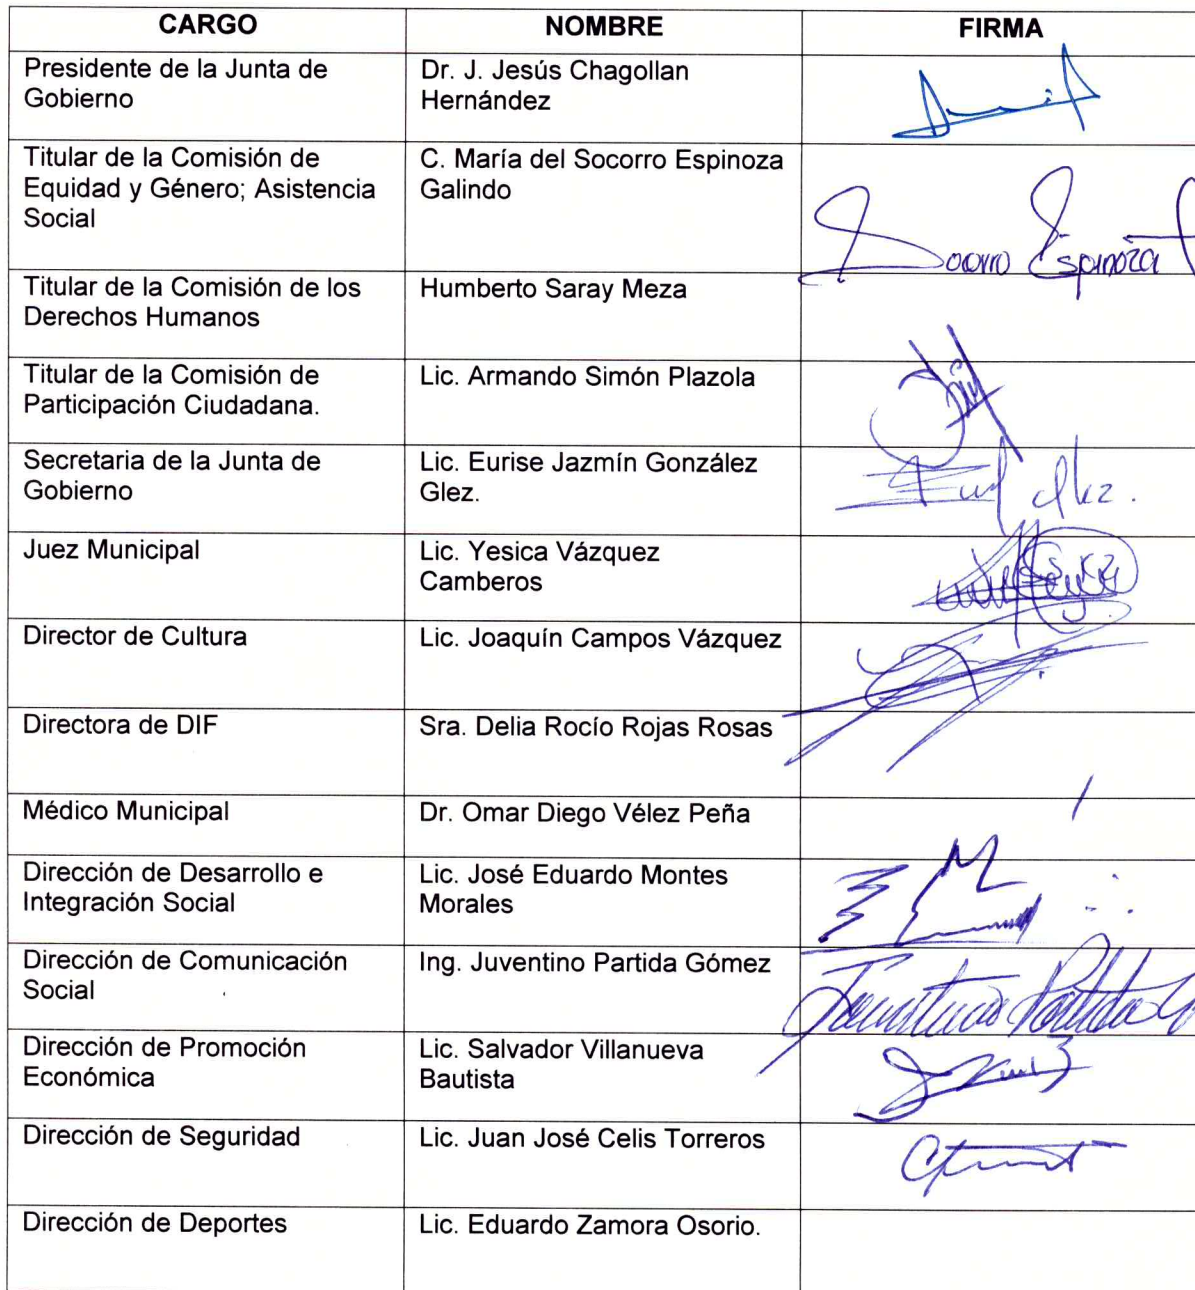 CARGO NOMBRE FIRMA
Presidente de la Junta de
Gobierno
Dr. J. Jesús Chagollan
Hernández
Titular de la Comisión de
Equidad y Género; Asistencia
Social
C. María del Socorro Espinoza
Galindo
Socorro Espinoza
Titular de la Comisión de los
Derechos Humanos
Humberto Saray Meza
Titular de la Comisión de
Participación Ciudadana.
Lic. Armando Simón Plazola
Secretaria de la Junta de
Gobierno
Lic. Eurise Jazmín González
Glez.
Juez Municipal
Lic. Yesica Vázquez
Camberos
Director de Cultura
Lic. Joaquín Campos Vázquez
Directora de DIF
Sra. Delia Rocío Rojas Rosas
Médico Municipal
Dr. Omar Diego Vélez Peña
Dirección de Desarrollo e
Integración Social
Lic. José Eduardo Montes
Morales
Dirección de Comunicación
Social
Ing. Juventino Partida Gómez
Juventino Partida G
Dirección de Promoción
Económica
Lic. Salvador Villanueva
Bautista
Dirección de Seguridad
Lic. Juan José Celis Torreros
Dirección de Deportes
Lic. Eduardo Zamora Osorio.